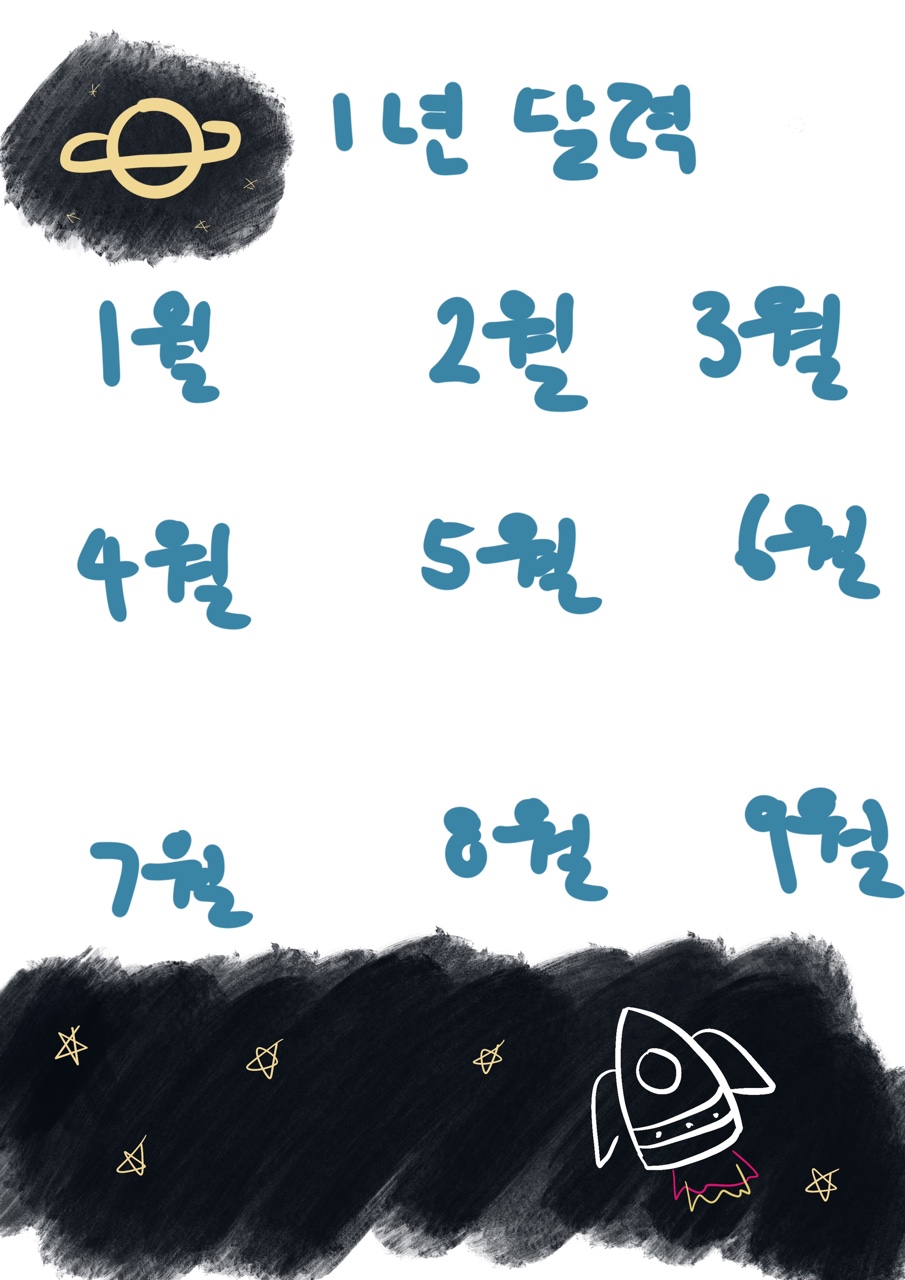 1년 달력
1월 2월 3월
4월 5월 6월
7월 8월 9월